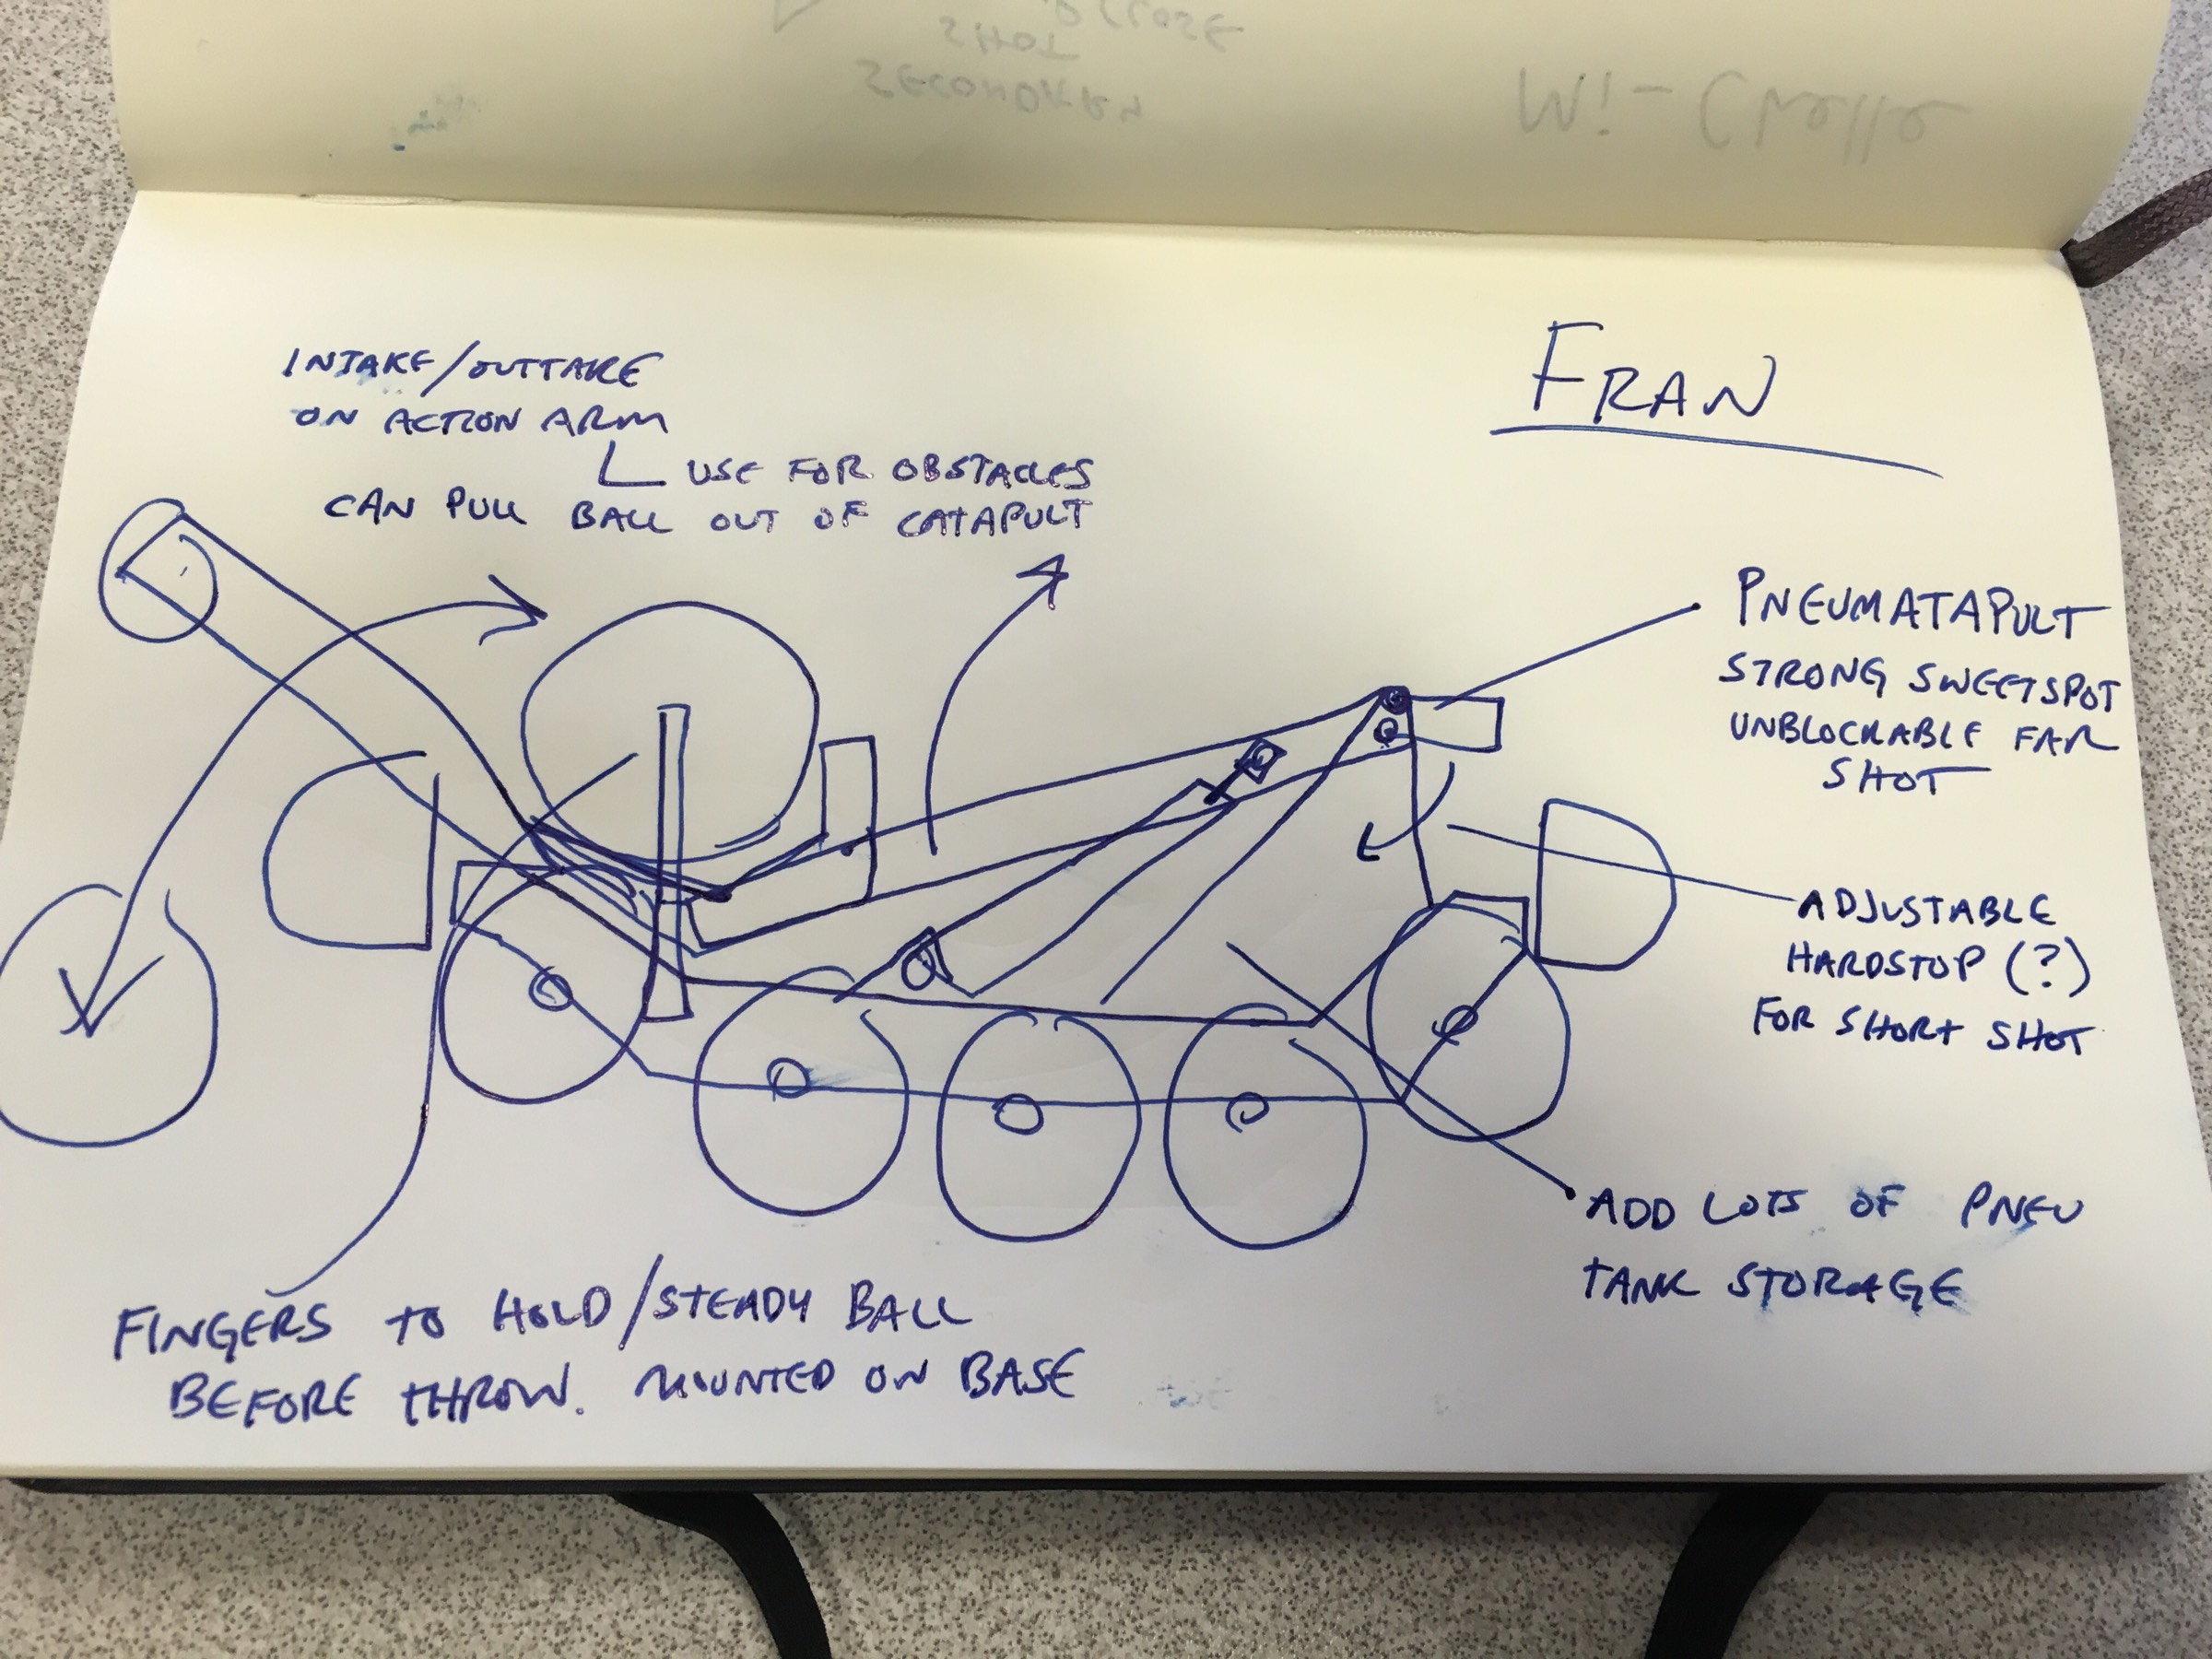 FRAN
INTAKE/OUTTAKE
ON ACTION ARM
USE FOR OBSTACLES
CAN PULL BALL OUT OF CATAPULT
PNEUMATAPULT
STRONG SWEETSPOT
UNBLOCKABLE FAR
SHOT
ADJUSTABLE
HARDSTOP (?)
FOR SHORT SHOT
ADD LOTS OF PNEU
TANK STORAGE
FINGERS TO HOLD/STEADY BALL
BEFORE THROW. MOUNTED ON BASE
SECONDARY
SHOT
Mi-Chelle